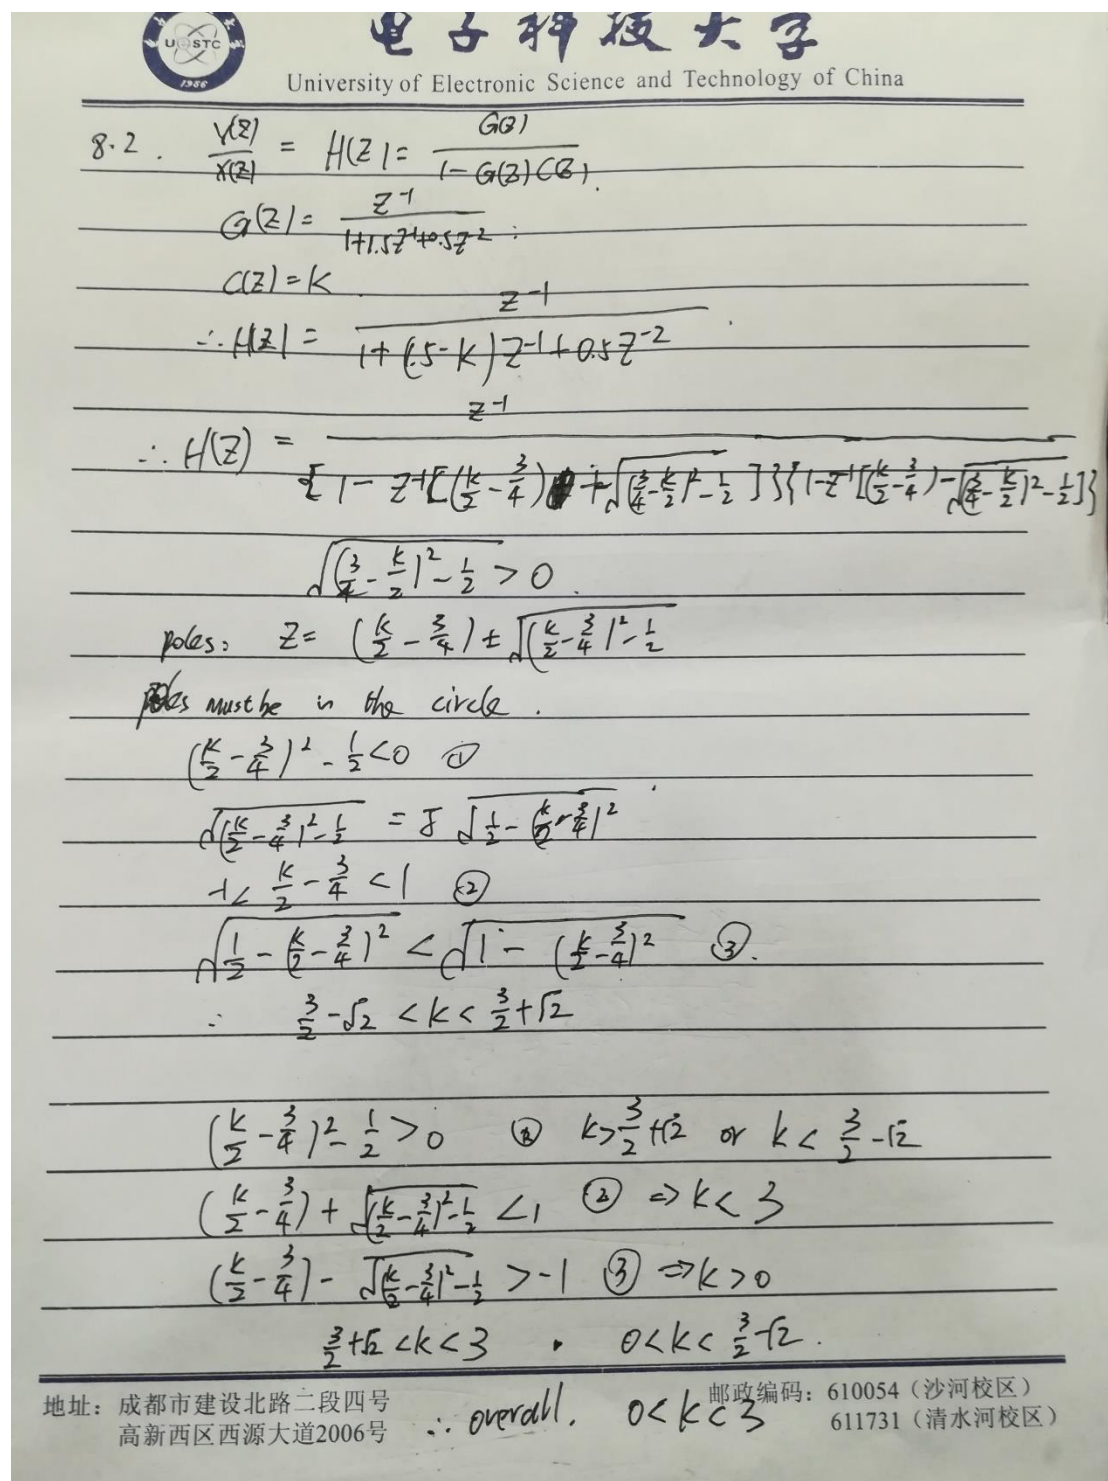 UESTC
1956
电子科技大学
University of Electronic Science and Technology of China
8.2. Y(Z)/X(Z) = H(Z) = G(Z)/(1-G(Z)C(Z)).
G(Z) = Z⁻¹/(1+1.5Z⁻¹+0.5Z⁻²)
C(Z) = K
∴ H(Z) = Z⁻¹/(1+(1.5-K)Z⁻¹+0.5Z⁻²)
∴ H(Z) = Z⁻¹/({1-Z⁻¹[(K/2-3/4)+√((3/4-K/2)²-1/2)]}{1-Z⁻¹[(K/2-3/4)-√((3/4-K/2)²-1/2)]})
√((3/4-K/2)²-1/2) > 0.
poles: Z = (K/2-3/4)±√((K/2-3/4)²-1/2)
poles must be in the circle.
(K/2-3/4)²-1/2<0 ①
√((K/2-3/4)²-1/2) = j√(1/2-(K/2-3/4)²)
-1< K/2-3/4 <1 ②
√(1/2-(K/2-3/4)²) < √(1-(K/2-3/4)²) ③.
∴ 3/2-√2 <K< 3/2+√2
(K/2-3/4)²-1/2>0 K>3/2+√2 or K<3/2-√2
(K/2-3/4)+√((K/2-3/4)²-1/2) <1 ② ⇒K<3
(K/2-3/4)-√((K/2-3/4)²-1/2) >-1 ③ ⇒K>0
3/2+√2 <K<3 . 0<K<3/2-√2.
∴ overall. 0<K<3
地址：成都市建设北路二段四号
高新西区西源大道2006号
邮政编码：610054（沙河校区）
611731（清水河校区）